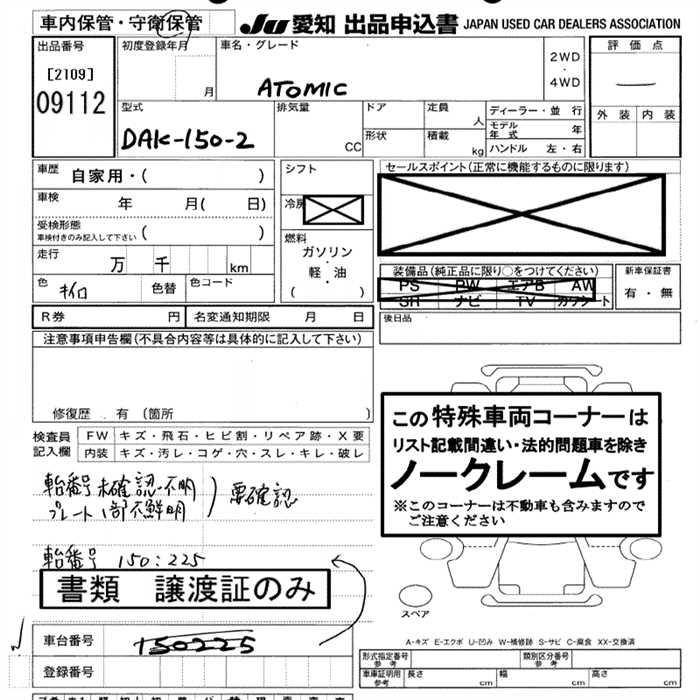 車内保管・守衛保管
JU 愛知 出品申込書 JAPAN USED CAR DEALERS ASSOCIATION
出品番号
[2109]
09112
初度登録年月
月
車名・グレード
ATOMIC
2WD
・
4WD
評価点
外装 内装
型式
DAK-150-2
排気量
CC
ドア
形状
定員
人
積載
kg
ディーラー・並行
モデル年式 年
ハンドル 左・右
車歴 自家用・( )
車検 年 月( 日)
受検形態
車検付きのみ記入して下さい ( )
走行 万 千 km
色 キイロ 色替 色コード
シフト
冷房
燃料
ガソリン
・
軽・油
( )
セールスポイント(正常に機能するものに限ります)
装備品(純正品に限り○をつけてください)
PS PW エアB AW
SR ナビ TV カワシート
新車保証書
有・無
R券 円 名変通知期限 月 日
後日品
注意事項申告欄(不具合内容等は具体的に記入して下さい)
修復歴 有(箇所 )
検査員記入欄
FW キズ・飛石・ヒビ割・リペア跡・X要
内装 キズ・汚レ・コゲ・穴・スレ・キレ・破レ
この特殊車両コーナーは
リスト記載間違い・法的問題車を除き
ノークレームです
※このコーナーは不動車も含みますので
ご注意ください
車台番号未確認・不明
プレート1部不鮮明
要確認
車台番号 150:225
書類 譲渡証のみ
スペア
車台番号 150225
登録番号
A-キズ E-エクボ U-凹み W-補修跡 S-サビ C-腐食 XX-交換済
形式指定番号
参考
類別区分番号
参考
車庫証明用
参考
長さ 幅 高さ